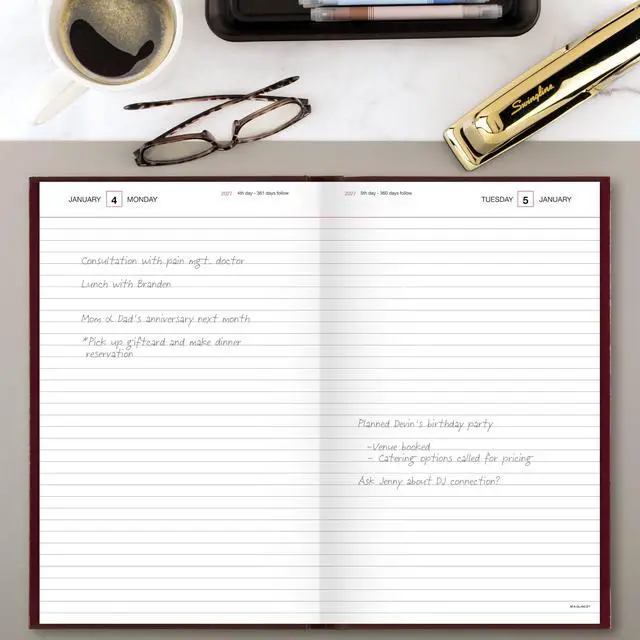 Swingline
JANUARY 4 MONDAY
2027 4th day - 361 days follow
Consultation with pain mgt. doctor
Lunch with Branden
Mom & Dad's anniversary next month
*Pick up giftcard and make dinner
reservation
2027 5th day - 360 days follow
TUESDAY 5 JANUARY
Planned Devin's birthday party
-Venue booked
- Catering options called for pricing
Ask Jenny about DJ connection?
AT-A-GLANCE